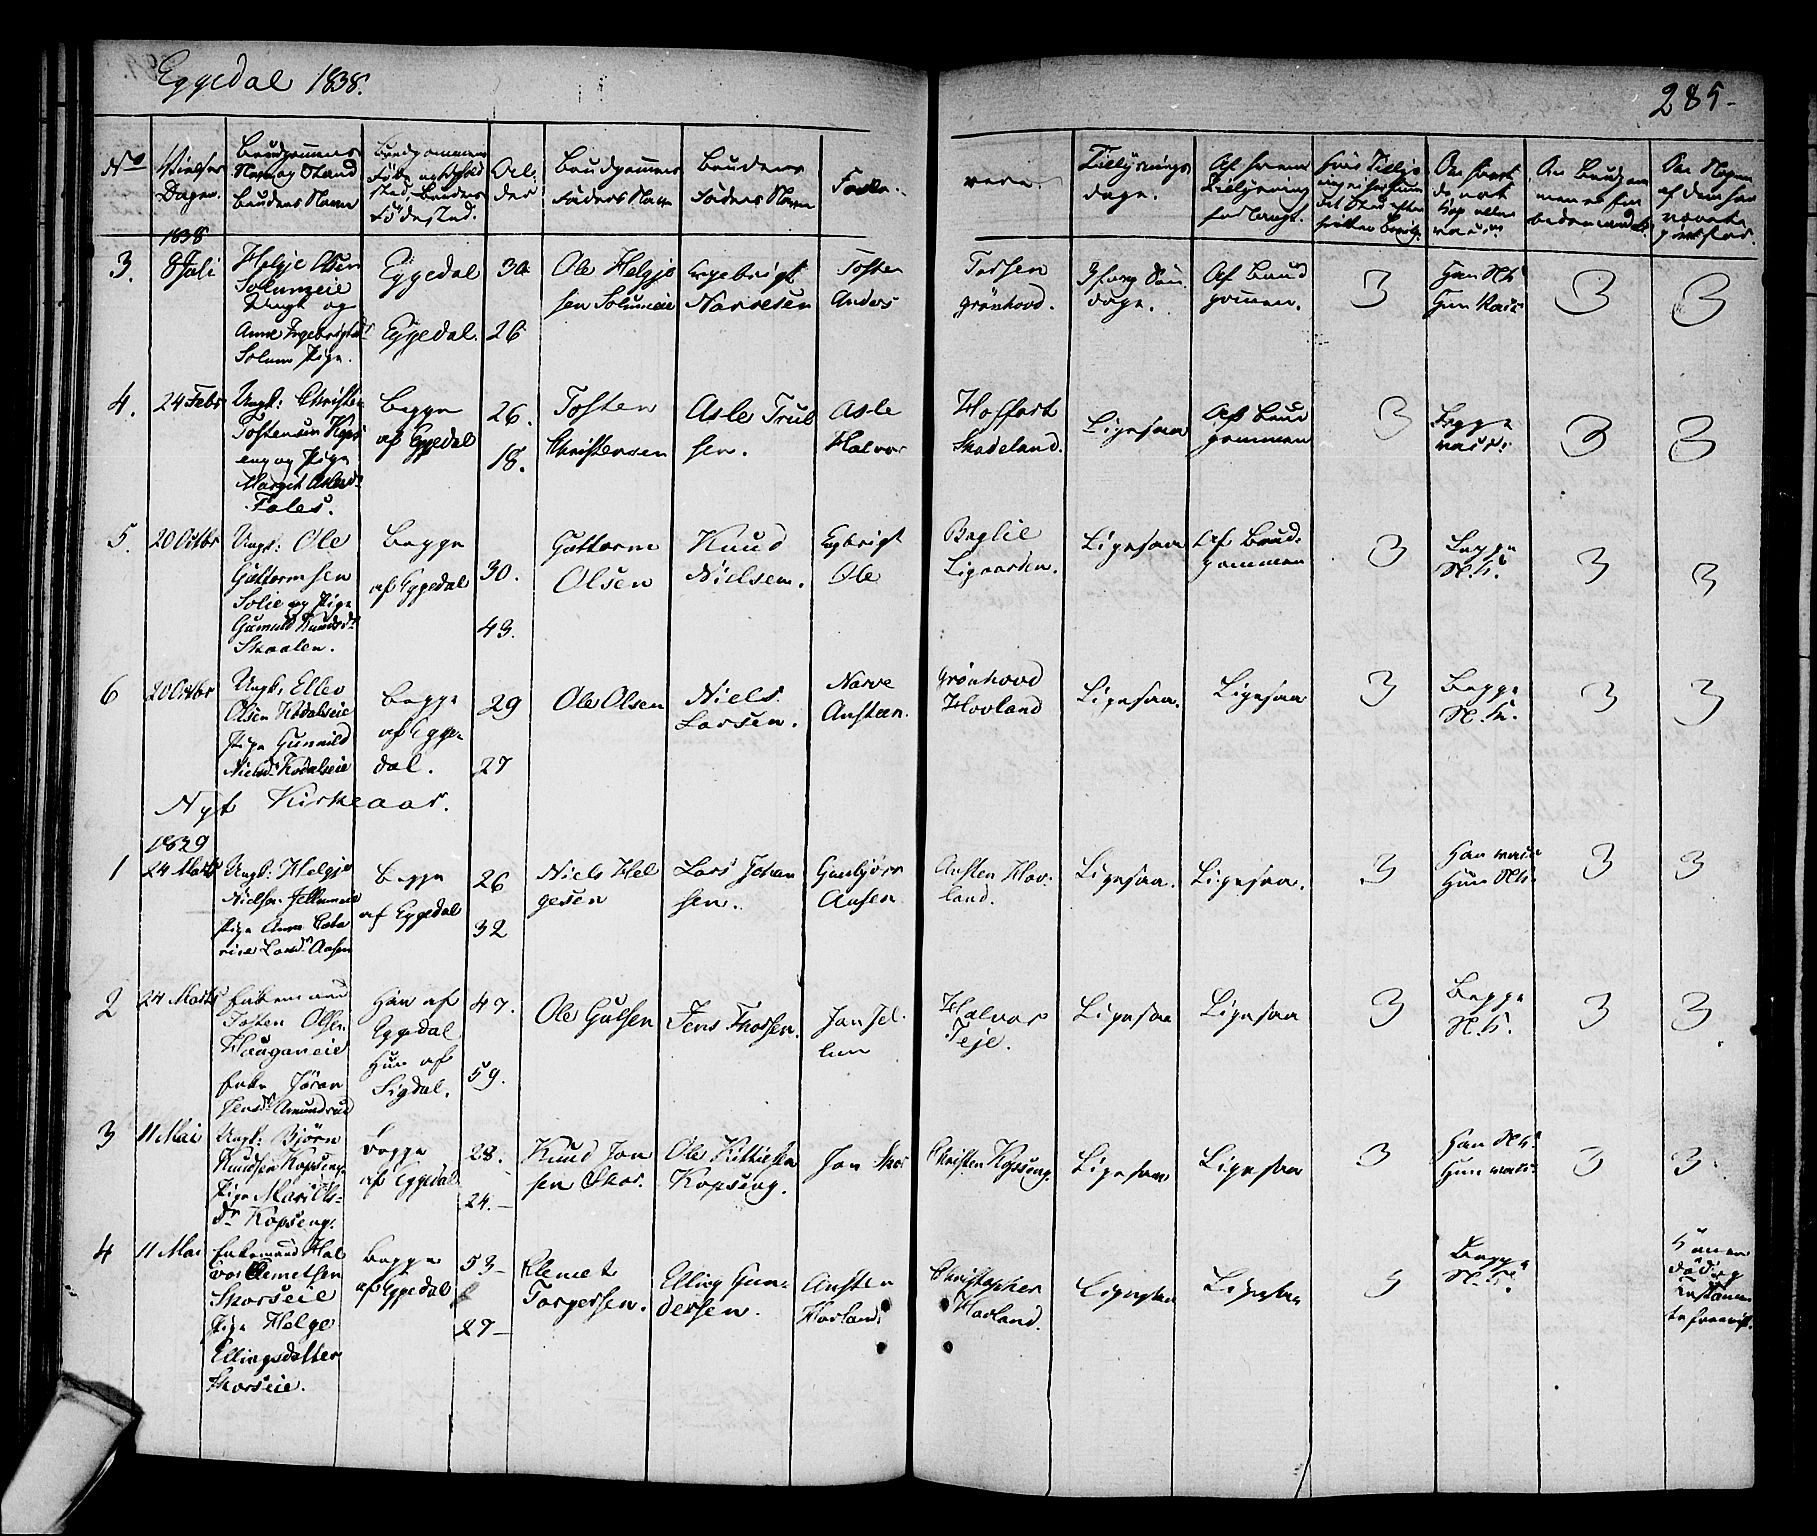 Eggedal 1838.
285.
No
Vielses Dagen.
Brudgommens Navn og Stand Brudens Navn
Brudgommens Føde og Opholdsted, Brudens Fødested.
Al- der
Brudgommens Faders Navn
Brudens Faders Navn
Forlo- vere.
Tillysnings dage.
Af hvem Tillysning forlangt.
1838
3. 8 Juli
Helge Olsen
Solumeie
Ungk og
Anne Ingebrigtsdr
Solum Pige.
Eggedal
Eggedal.
30
26
Ole Helgje
sen Solumeie
Engebrigt
Narvesen
Tosten
Anders
Torsen
Grønhovd.
3 foreg Søn
dage.
Af Brud
gommen.
3
Han
Hun Vacc
3
3
4. 24 Febr
Ungk: Christen
Tostensen
eng og Pige
Margit Aslesdr
Foles.
Begge
af Eggedal
26.
18.
Tosten
Christensen
Asle Trul
sen.
Asle
Halvor
Hoffart
Skadeland.
Ligesaa
Af Brud
gommen
3
Begge
vacc:
3
3
5. 20 Octbr
Ungk: Ole
Guttormsen
Solie og Pige
Gunnild Knudsdr
Skaalen.
Begge
af Eggedal
30.
43.
Guttorm
Olsen
Knud
Nielsen.
Engbrigt
Ole
Baglie
Ligaarden.
Ligesaa
Af Brud-
gommen
3
Begge
N. K.
3
3
6 20 Octbr
Ungk: Ellev
Olsen Kodalseie
Pige Gunnild
Nielsdr Kodalseie
Begge
af Egge
dal.
29
27
Ole Olsen
Niels
Larsen.
Narve
Ansteen.
Grønhovd
Hovland
Ligesaa.
Ligesaa
3
Begge
N. K.
3
3
Nyt Kirkeaar.
1839
1 24 Marts
Ungk: Helgje
Nielsen Jellumeie
Pige Anne Catha
rine Larsdr Aasen
Begge
af Eggedal
26
32
Niels Hel
gesen
Lars Johan
sen.
Gunbjørn
Aasen
Ansten Hov-
land.
Ligesaa.
Ligesaa.
3
Han vacc
Hun N. K.
3
3
2 24 Marts
Enkemand
Tosten Olsen
Hauganeie
Enke Jøran
Jensdr Amundrud
Han af
Eggedal
Hun af
Sigdal.
47.
59.
Ole Gulsen
Jens Thossen.
Jan Jel-
lum
Halvor
Teje.
Ligesaa
Ligesaa
3
Begge
N. K.
3
3
3 11 Mai
Ungk: Bjørn
Knudsen Kopseng
Pige Mari Ols-
dr Kopseng.
Begge
af Eggedal
28.
24.
Knud Jon
sen Skor.
Ole Kittilsen
Kopseng.
Jon Skor
Christen Kopseng.
Ligesaa
Ligesaa
3
Han N. K.
Hun vacc.
3
3
4 11 Mai
Enkemand Hal
vor Clemetsen
Skorseie
Pige Helge
Ellingsdatter
Skorseie.
Begge
af Eggedal
53
27
Clemet
Torgersen.
Elling Gun-
dersen.
Ansten
Hovland.
Christopher
Hovland.
Ligesaa
Ligesaa
3
Begge
N. K.